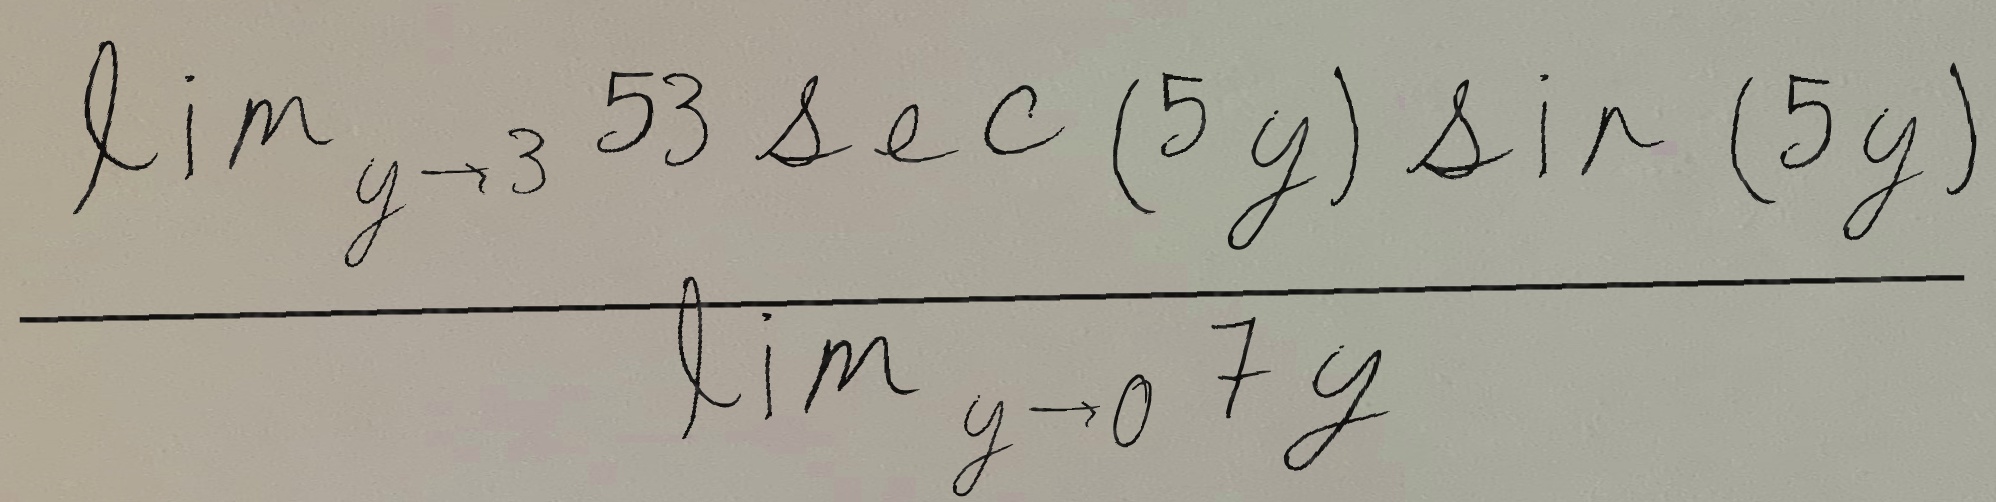 lim y→3 53 sec (5y) sin (5y)
lim y→0 7y